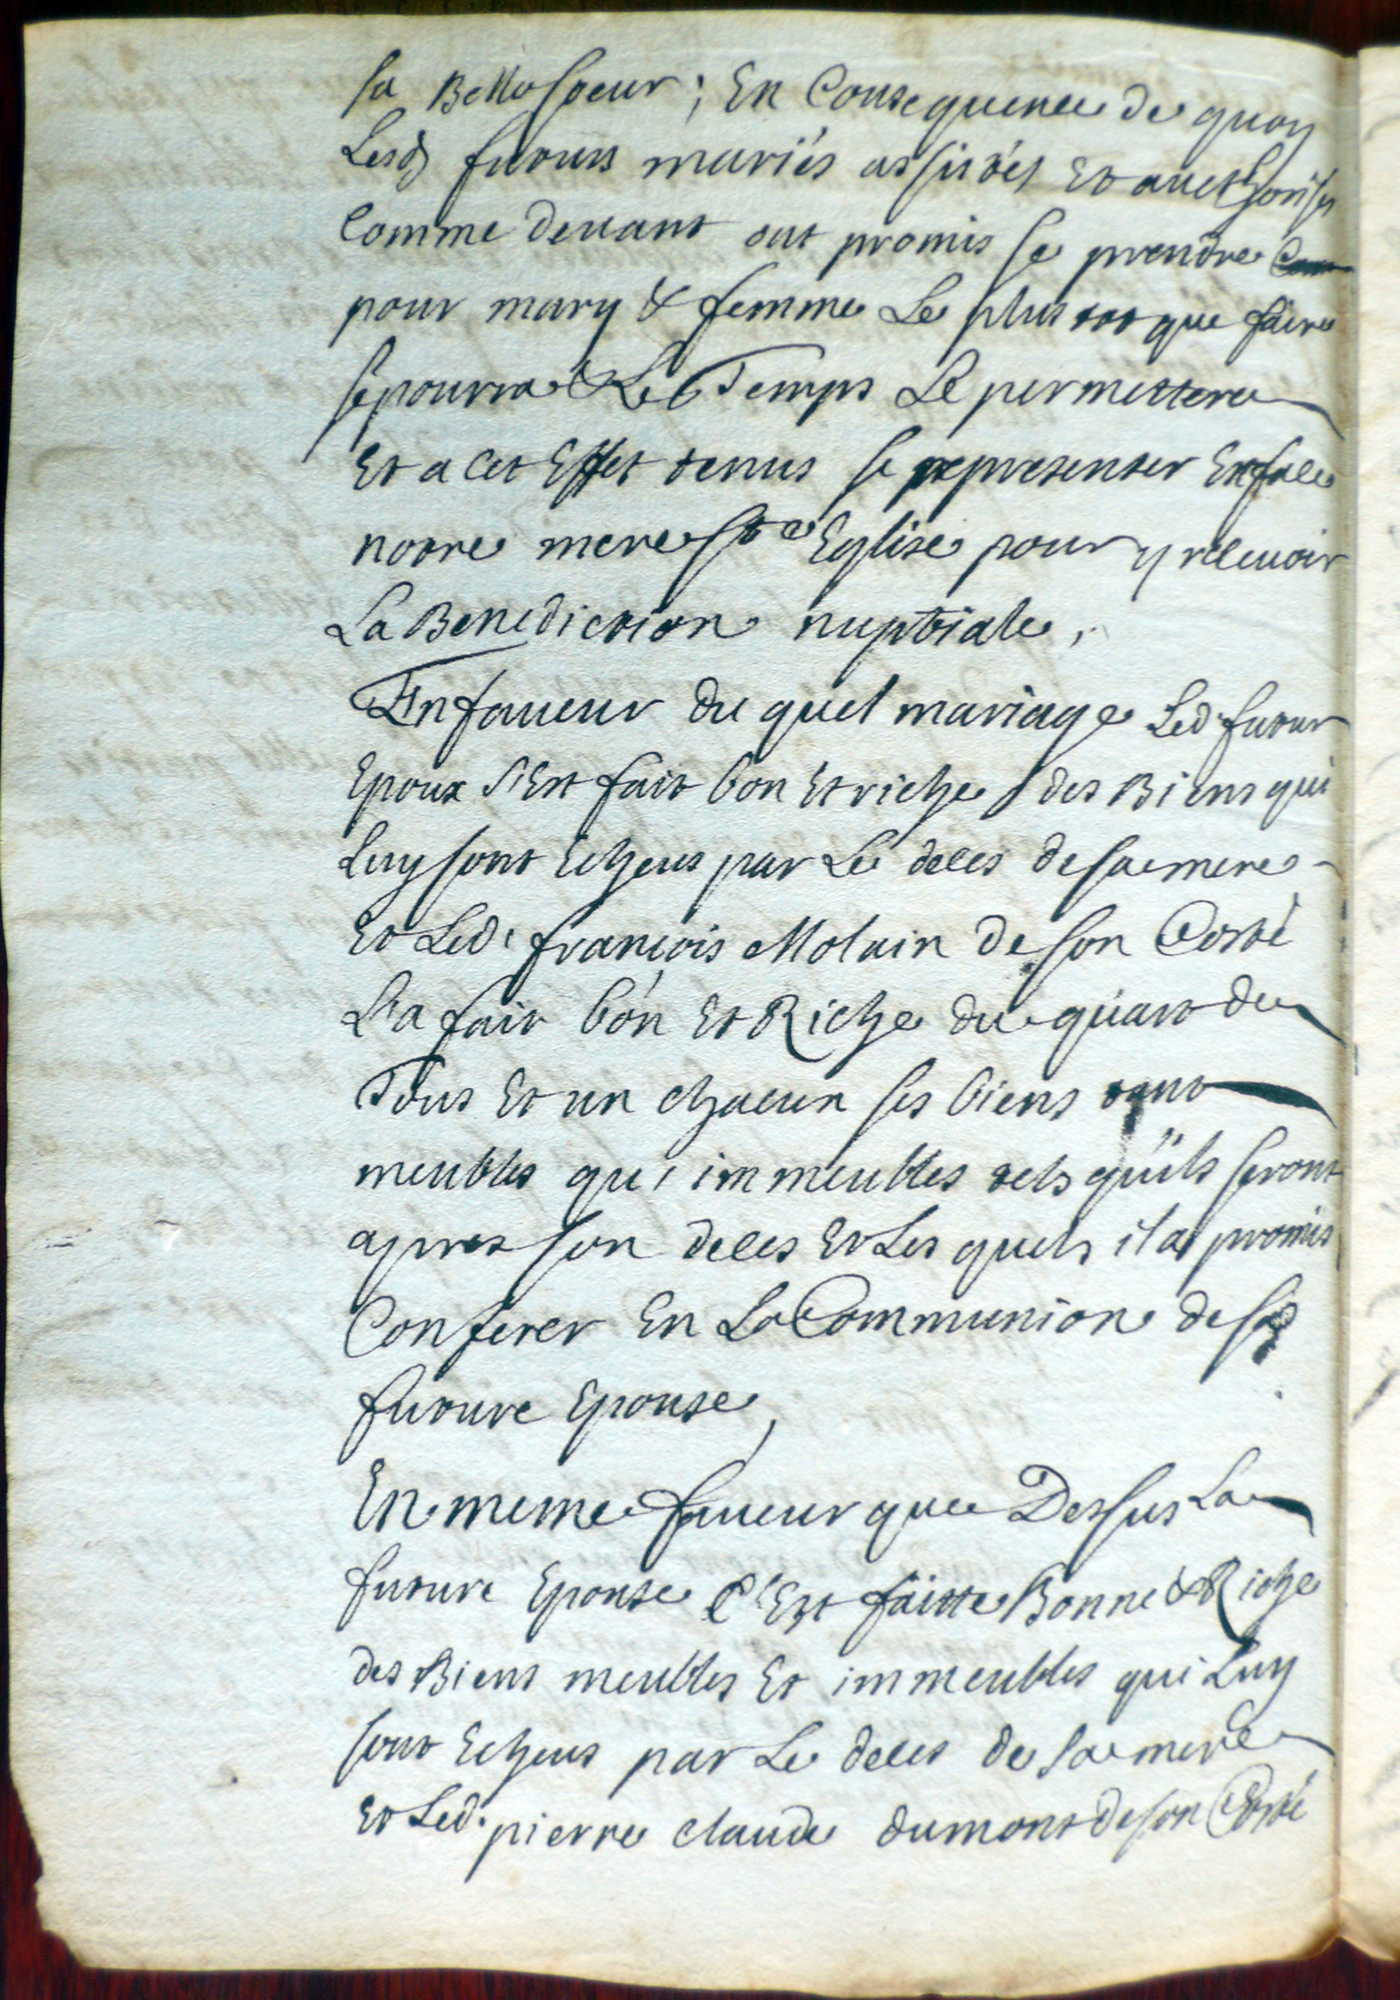 sa Belle soeur ; En Consequence de quoy
Lesd futurs mariés assistés Et aucthorisés
Comme devant ont promis se prendre
pour mary & femme Le plus tot que faire
se pourra & Le Temps Le permettera
Et a Cet Effet tenus se representer En face
notre mere Ste Eglise pour y recevoir
La Benediction nuptiale,
En faveur du quel mariage Led. futur
Epoux s'Est fait bon Et riche des Biens qui
Luy sont Echeus par Le deces de sa mere
Et Led. françois Molain de son Costé
L'a fait bon Et Riche du quart du
Tous Et un chacun ses biens tant
meubles qui immeubles tels qu'ils seront
apres son deces Et Les quels il a promis
Conferer En La Communion de sa
future Epouse,
En meme faveur que Dessus La
future Epouse s'Est faitte Bonne & Riche
des Biens meubles Et immeubles qui Luy
sont Echeus par Le deces de sa mere
Et Led. pierre claude dumont de son Costé